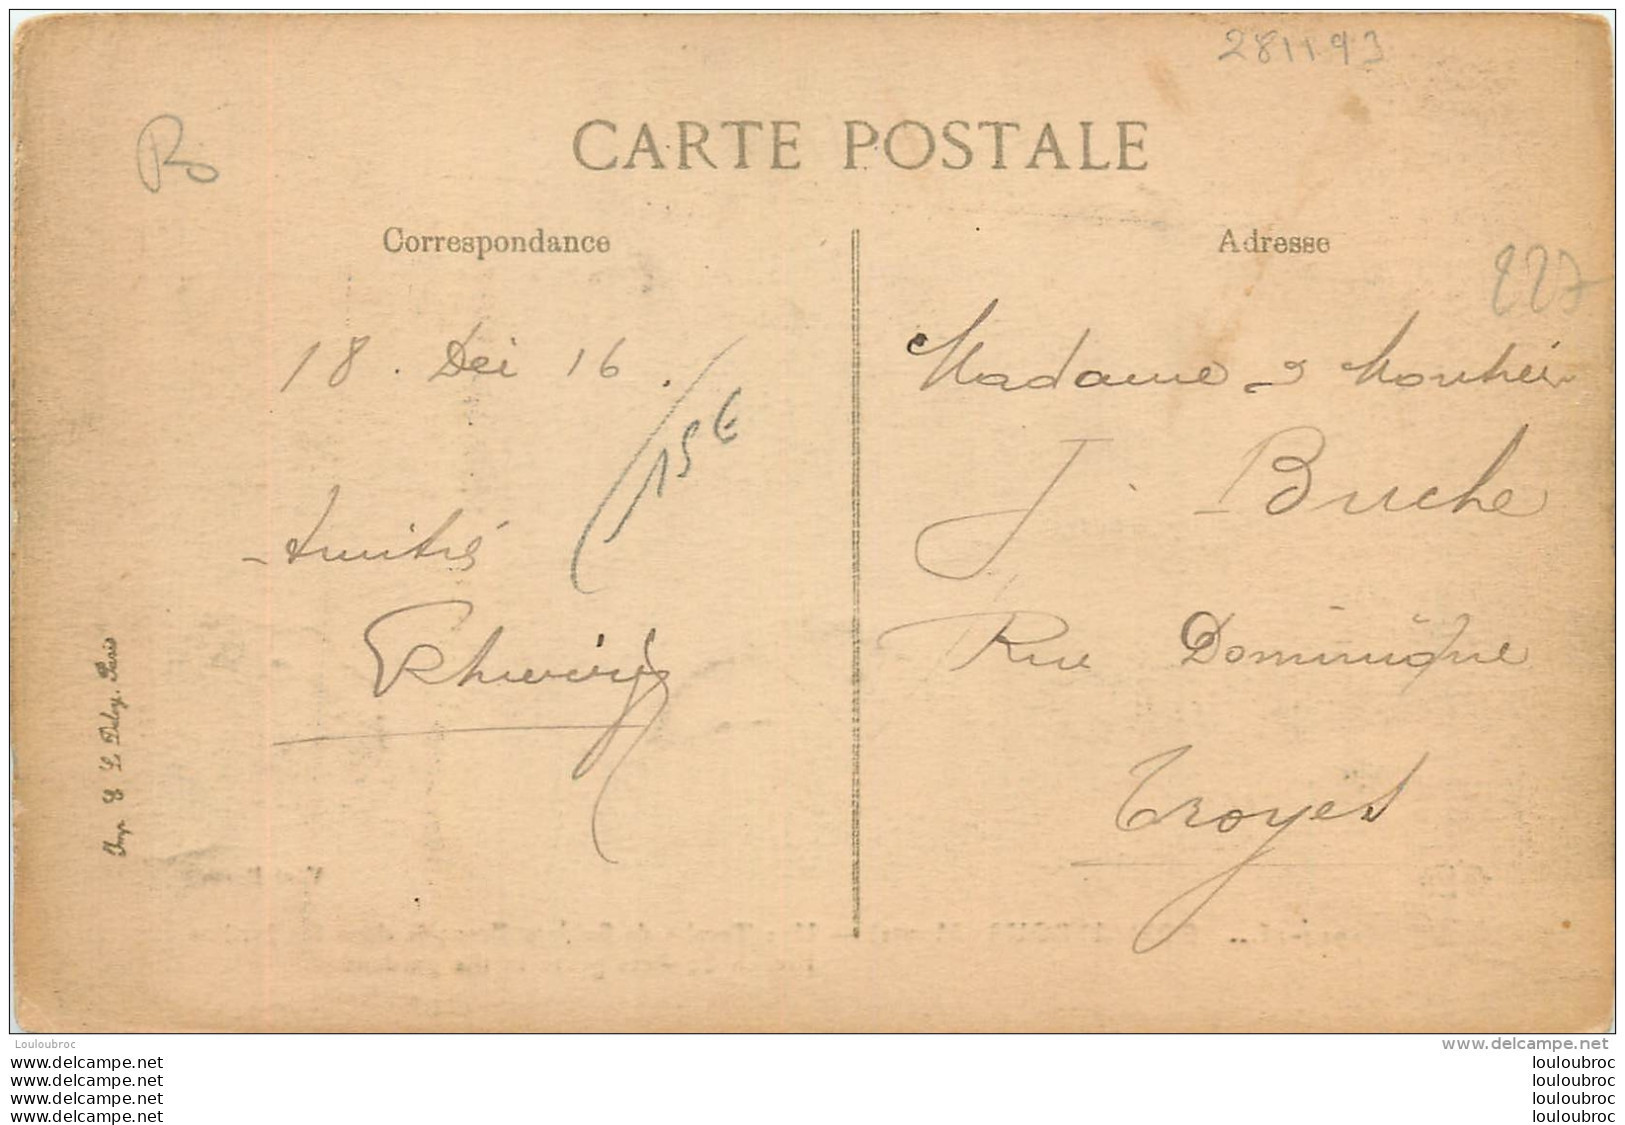 281193
CARTE POSTALE
Correspondance
Adresse
227
18. Dec 16.
15€
Madame &
J. Buche
Amitiés
Rue Dominique
Troyes
Imp. E. Le Deley, Paris
Louloubroc
www.delcampe.net
www.delcampe.net
louloubroc
www.delcampe.net
louloubroc
www.delcampe.net
louloubroc
www.delcampe.net
louloubroc